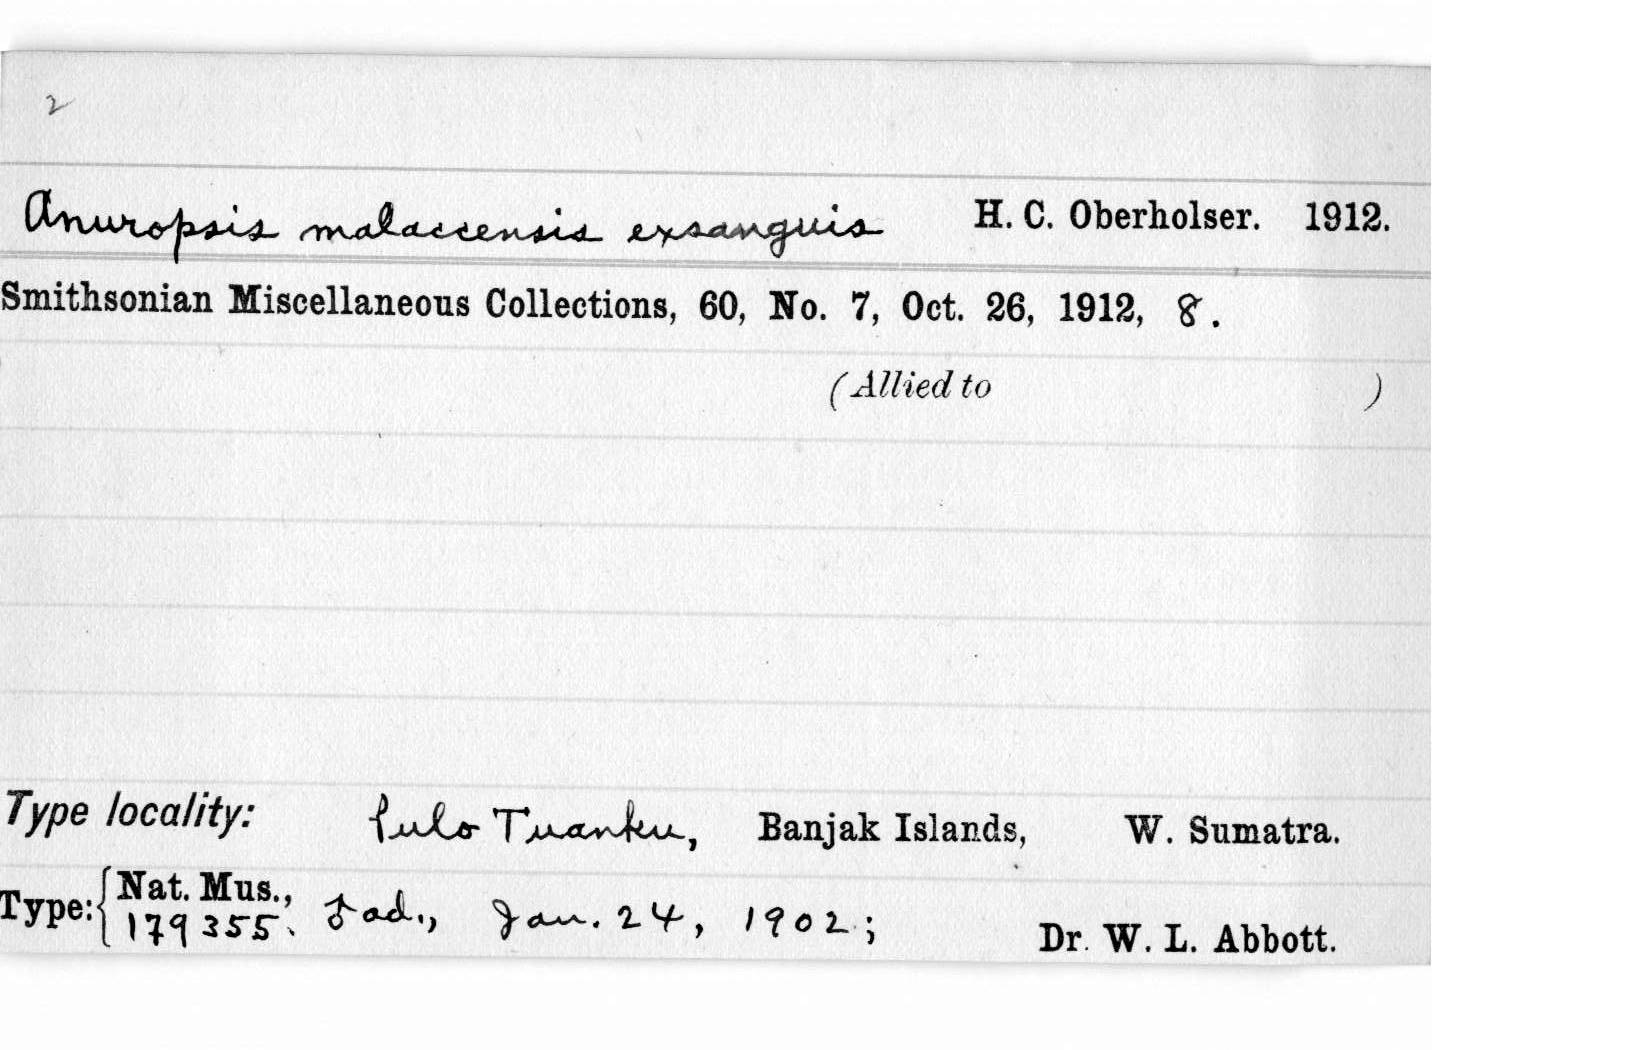 2
Anuropsis malaccensis exsanguis H. C. Oberholser. 1912.
Smithsonian Miscellaneous Collections, 60, No. 7, Oct. 26, 1912, 8.
(Allied to )
Type locality: Pulo Tuanku, Banjak Islands, W. Sumatra.
Type: { Nat. Mus.,
179355. ♂ ad., Jan. 24, 1902; Dr. W. L. Abbott.